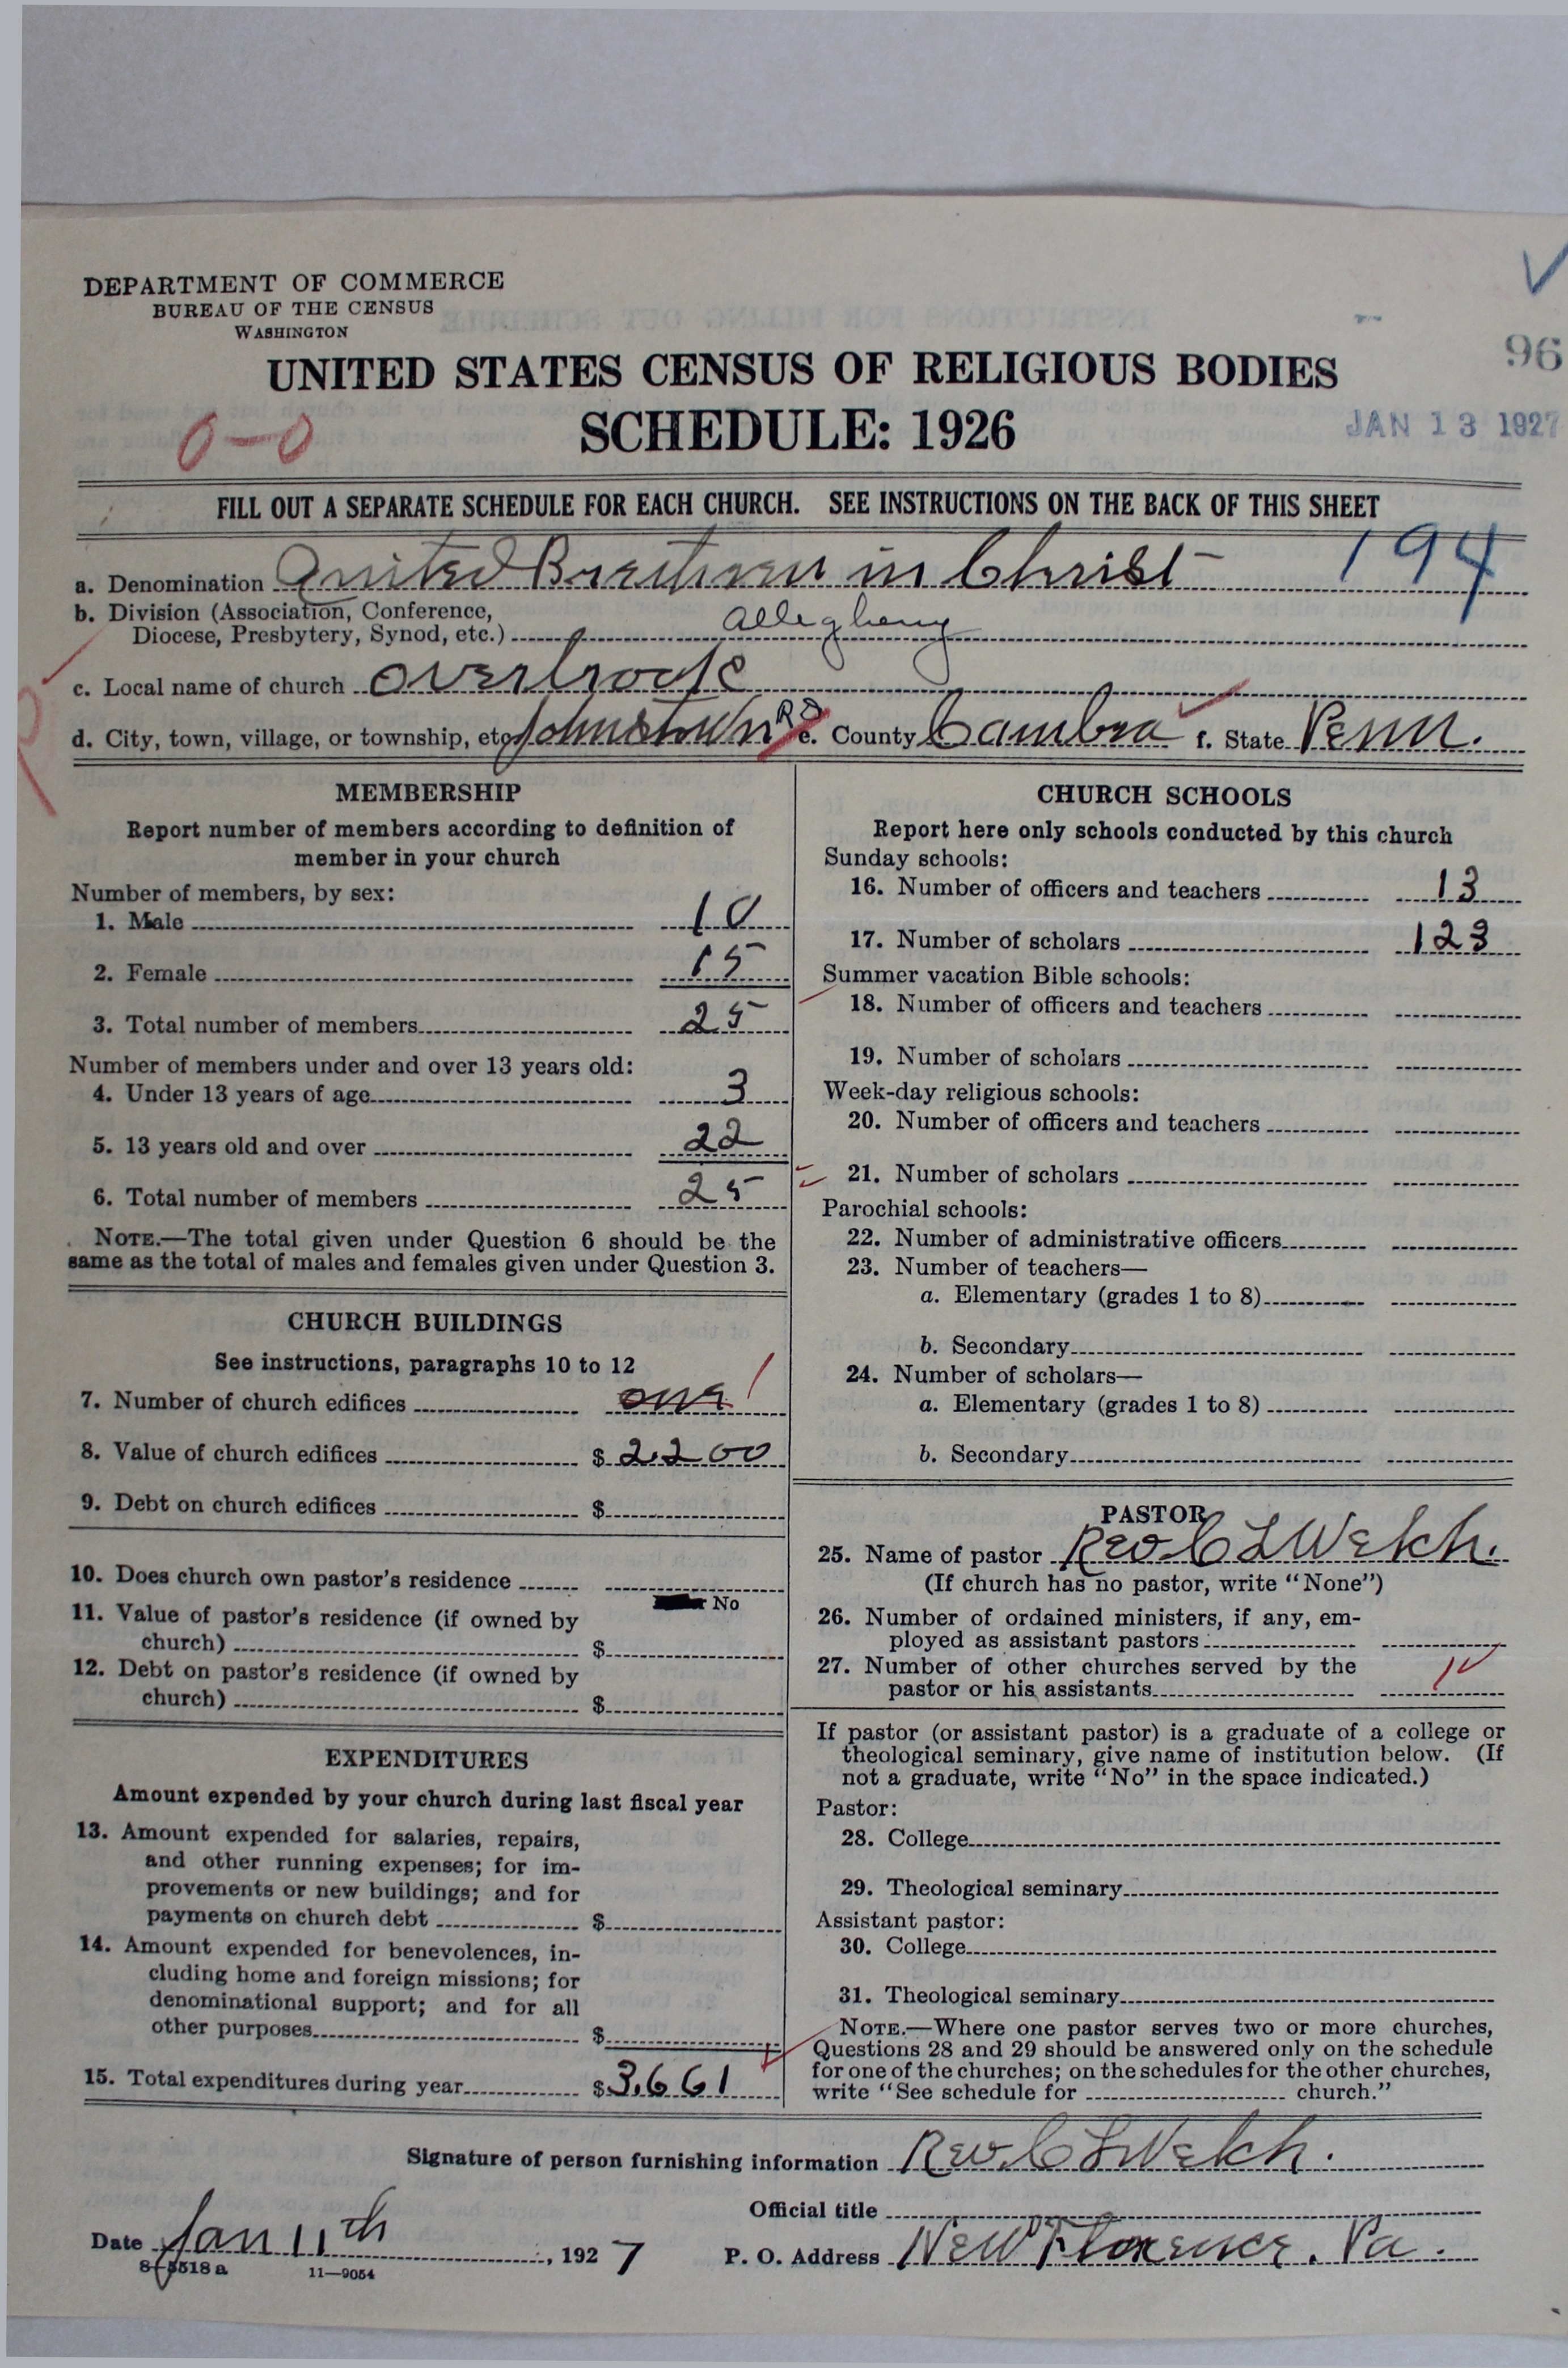 DEPARTMENT OF COMMERCE
BUREAU OF THE CENSUS
WASHINGTON
UNITED STATES CENSUS OF RELIGIOUS BODIES
96
SCHEDULE: 1926
0-0
JAN 13 1927
FILL OUT A SEPARATE SCHEDULE FOR EACH CHURCH. SEE INSTRUCTIONS ON THE BACK OF THIS SHEET
a. Denomination United Brethren in Christ 194
b. Division (Association, Conference,
Diocese, Presbytery, Synod, etc.) Allegheny
c. Local name of church Overbrook
d. City, town, village, or township, etc. Johnstown RD e. County Cambria f. State Penn.
MEMBERSHIP
Report number of members according to definition of
member in your church
Number of members, by sex:
1. Male 10
2. Female 15
3. Total number of members 25
Number of members under and over 13 years old:
4. Under 13 years of age 3
5. 13 years old and over 22
6. Total number of members 25
NOTE.—The total given under Question 6 should be the
same as the total of males and females given under Question 3.
CHURCH BUILDINGS
See instructions, paragraphs 10 to 12
7. Number of church edifices one 1
8. Value of church edifices $ 2,200
9. Debt on church edifices $
10. Does church own pastor's residence
No
11. Value of pastor's residence (if owned by
church) $
12. Debt on pastor's residence (if owned by
church) $
EXPENDITURES
Amount expended by your church during last fiscal year
13. Amount expended for salaries, repairs,
and other running expenses; for im-
provements or new buildings; and for
payments on church debt $
14. Amount expended for benevolences, in-
cluding home and foreign missions; for
denominational support; and for all
other purposes $
15. Total expenditures during year $ 3,661
CHURCH SCHOOLS
Report here only schools conducted by this church
Sunday schools:
16. Number of officers and teachers 13
17. Number of scholars 123
Summer vacation Bible schools:
18. Number of officers and teachers
19. Number of scholars
Week-day religious schools:
20. Number of officers and teachers
21. Number of scholars
Parochial schools:
22. Number of administrative officers
23. Number of teachers—
a. Elementary (grades 1 to 8)
b. Secondary
24. Number of scholars—
a. Elementary (grades 1 to 8)
b. Secondary
PASTOR
25. Name of pastor Rev C L Welch.
(If church has no pastor, write "None")
26. Number of ordained ministers, if any, em-
ployed as assistant pastors
27. Number of other churches served by the
pastor or his assistants
If pastor (or assistant pastor) is a graduate of a college or
theological seminary, give name of institution below. (If
not a graduate, write "No" in the space indicated.)
Pastor:
28. College
29. Theological seminary
Assistant pastor:
30. College
31. Theological seminary
NOTE.—Where one pastor serves two or more churches,
Questions 28 and 29 should be answered only on the schedule
for one of the churches; on the schedules for the other churches,
write "See schedule for church."
Signature of person furnishing information Rev. C L Welch.
Official title
Date Jan 11th, 1927 P. O. Address New Florence, Pa.
8-5518a 11—9054